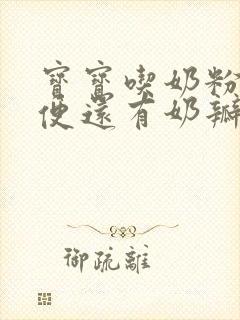 寶寶喫奶粉
便還有奶瓣
御疏離